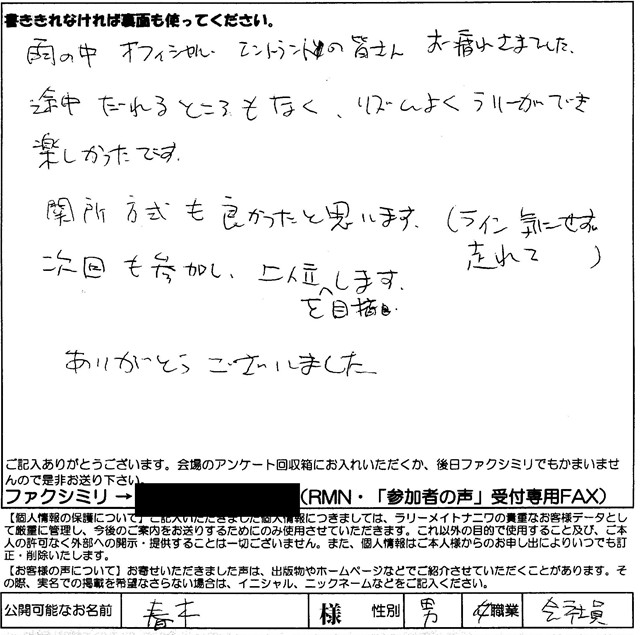 書ききれなければ裏面も使ってください。
雨の中 オフィシャル、エントラントの皆さん お疲れさまでした。
途中 だれるところもなく、リズムよくラリーができ
楽しかったです。
関所方式も良かったと思います。(ライン気にせず
走れて)
次回も参加し、上位
を目指
します。
ありがとうございました
ご記入ありがとうございます。会場のアンケート回収箱にお入れいただくか、後日ファクシミリでもかまいませ
んので是非お送り下さい。
ファクシミリ→ (RMN・「参加者の声」受付専用FAX)
【個人情報の保護について】ご記入いただきました個人情報につきましては、ラリーメイトナニワの貴重なお客様データとし
て厳重に管理し、今後のご案内をお送りするためにのみ使用させていただきます。これ以外の目的で使用すること及び、ご本
人の許可なく外部への開示・提供することは一切ございません。また、個人情報はご本人様からのお申し出によりいつでも訂
正・削除いたします。
【お客様の声について】お寄せいただきました声は、出版物やホームページなどでご紹介させていただくことがあります。そ
の際、実名での掲載を希望なさらない場合は、イニシャル、ニックネームなどをご記入ください。
公開可能なお名前 春本 様 性別 男 女 職業 会社員